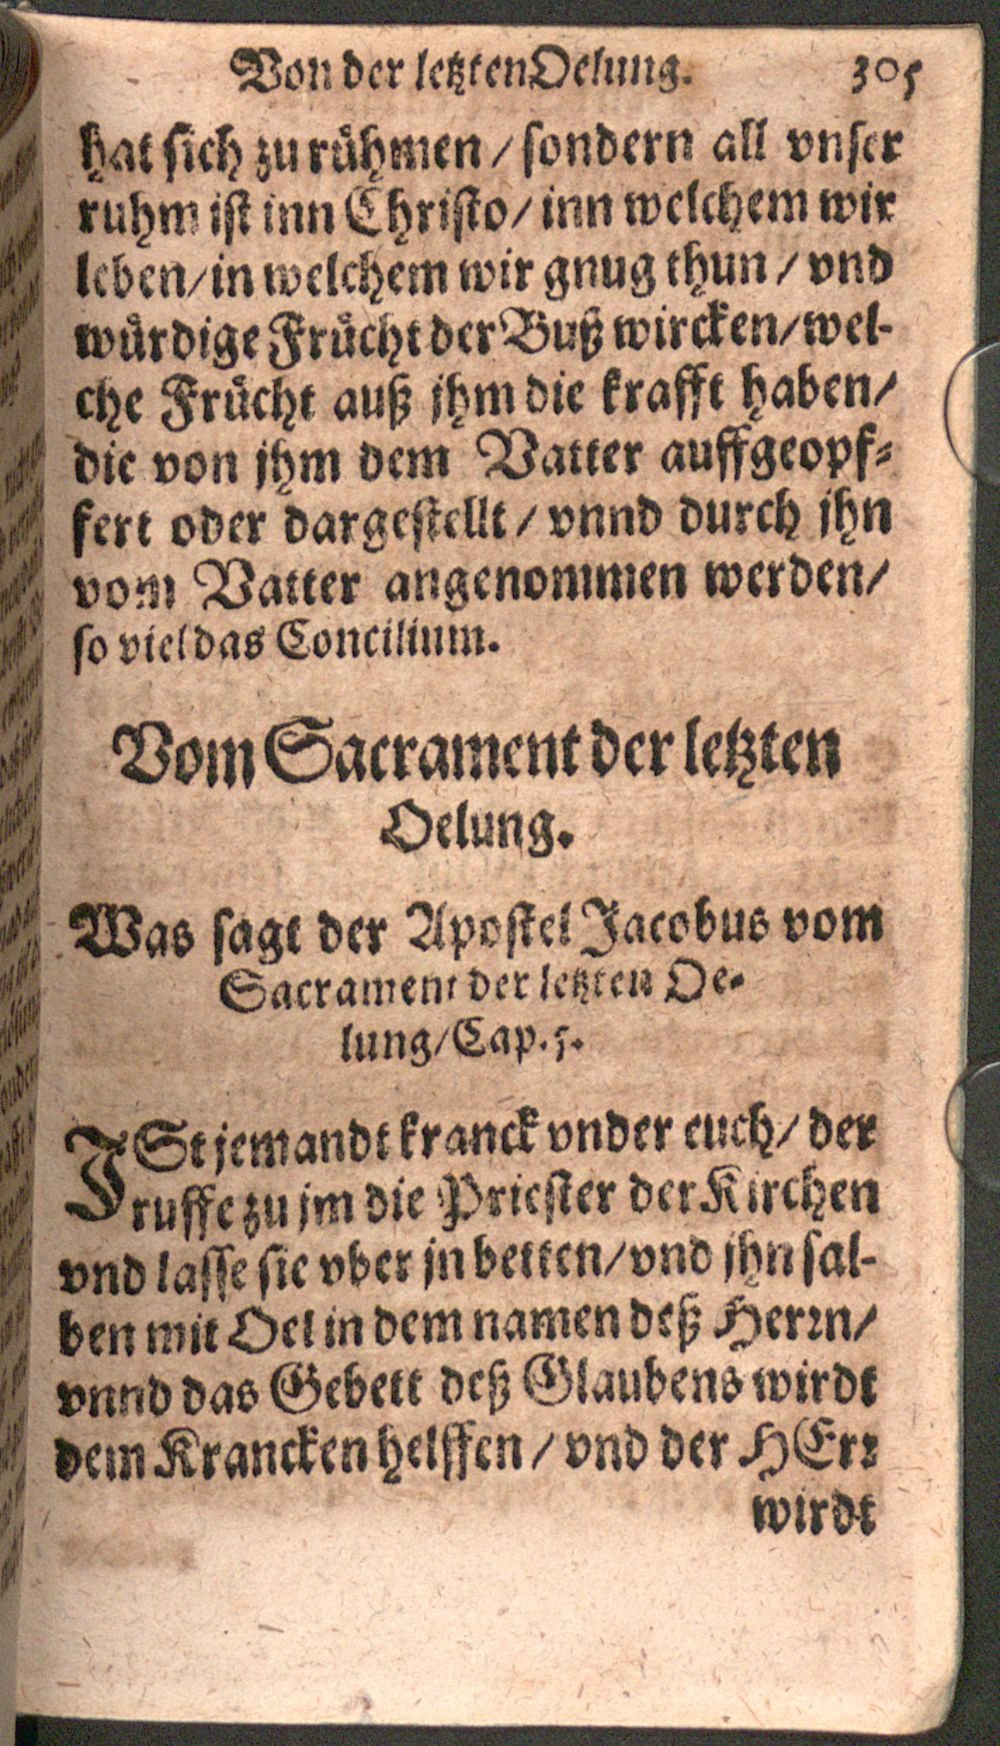 Von der letzten Oelung. 305
hat sich zu růhmen / sondern all vnser
ruhm ist inn Christo / inn welchem wir
leben / in welchem wir gnug thun / vnd
wůrdige Frůcht der Buß wircken / wel-
che Frůcht auß jhm die krafft haben /
die von jhm dem Vatter auffgeopf-
fert oder dargestellt / vnnd durch jhn
vom Vatter angenommen werden /
so viel das Concilium.
Vom Sacrament der letzten
Oelung.
Was sagt der Apostel Jacobus vom
Sacrament der letzten Oe-
lung / Cap. 5.
ISt jemandt kranck vnder euch / der
ruffe zu jm die Priester der Kirchen
vnd lasse sie vber jn betten / vnd jhn sal-
ben mit Oel in dem namen deß Herrn /
vnnd das Gebett deß Glaubens wirdt
dem Krancken helffen / vnd der HErr
wirdt